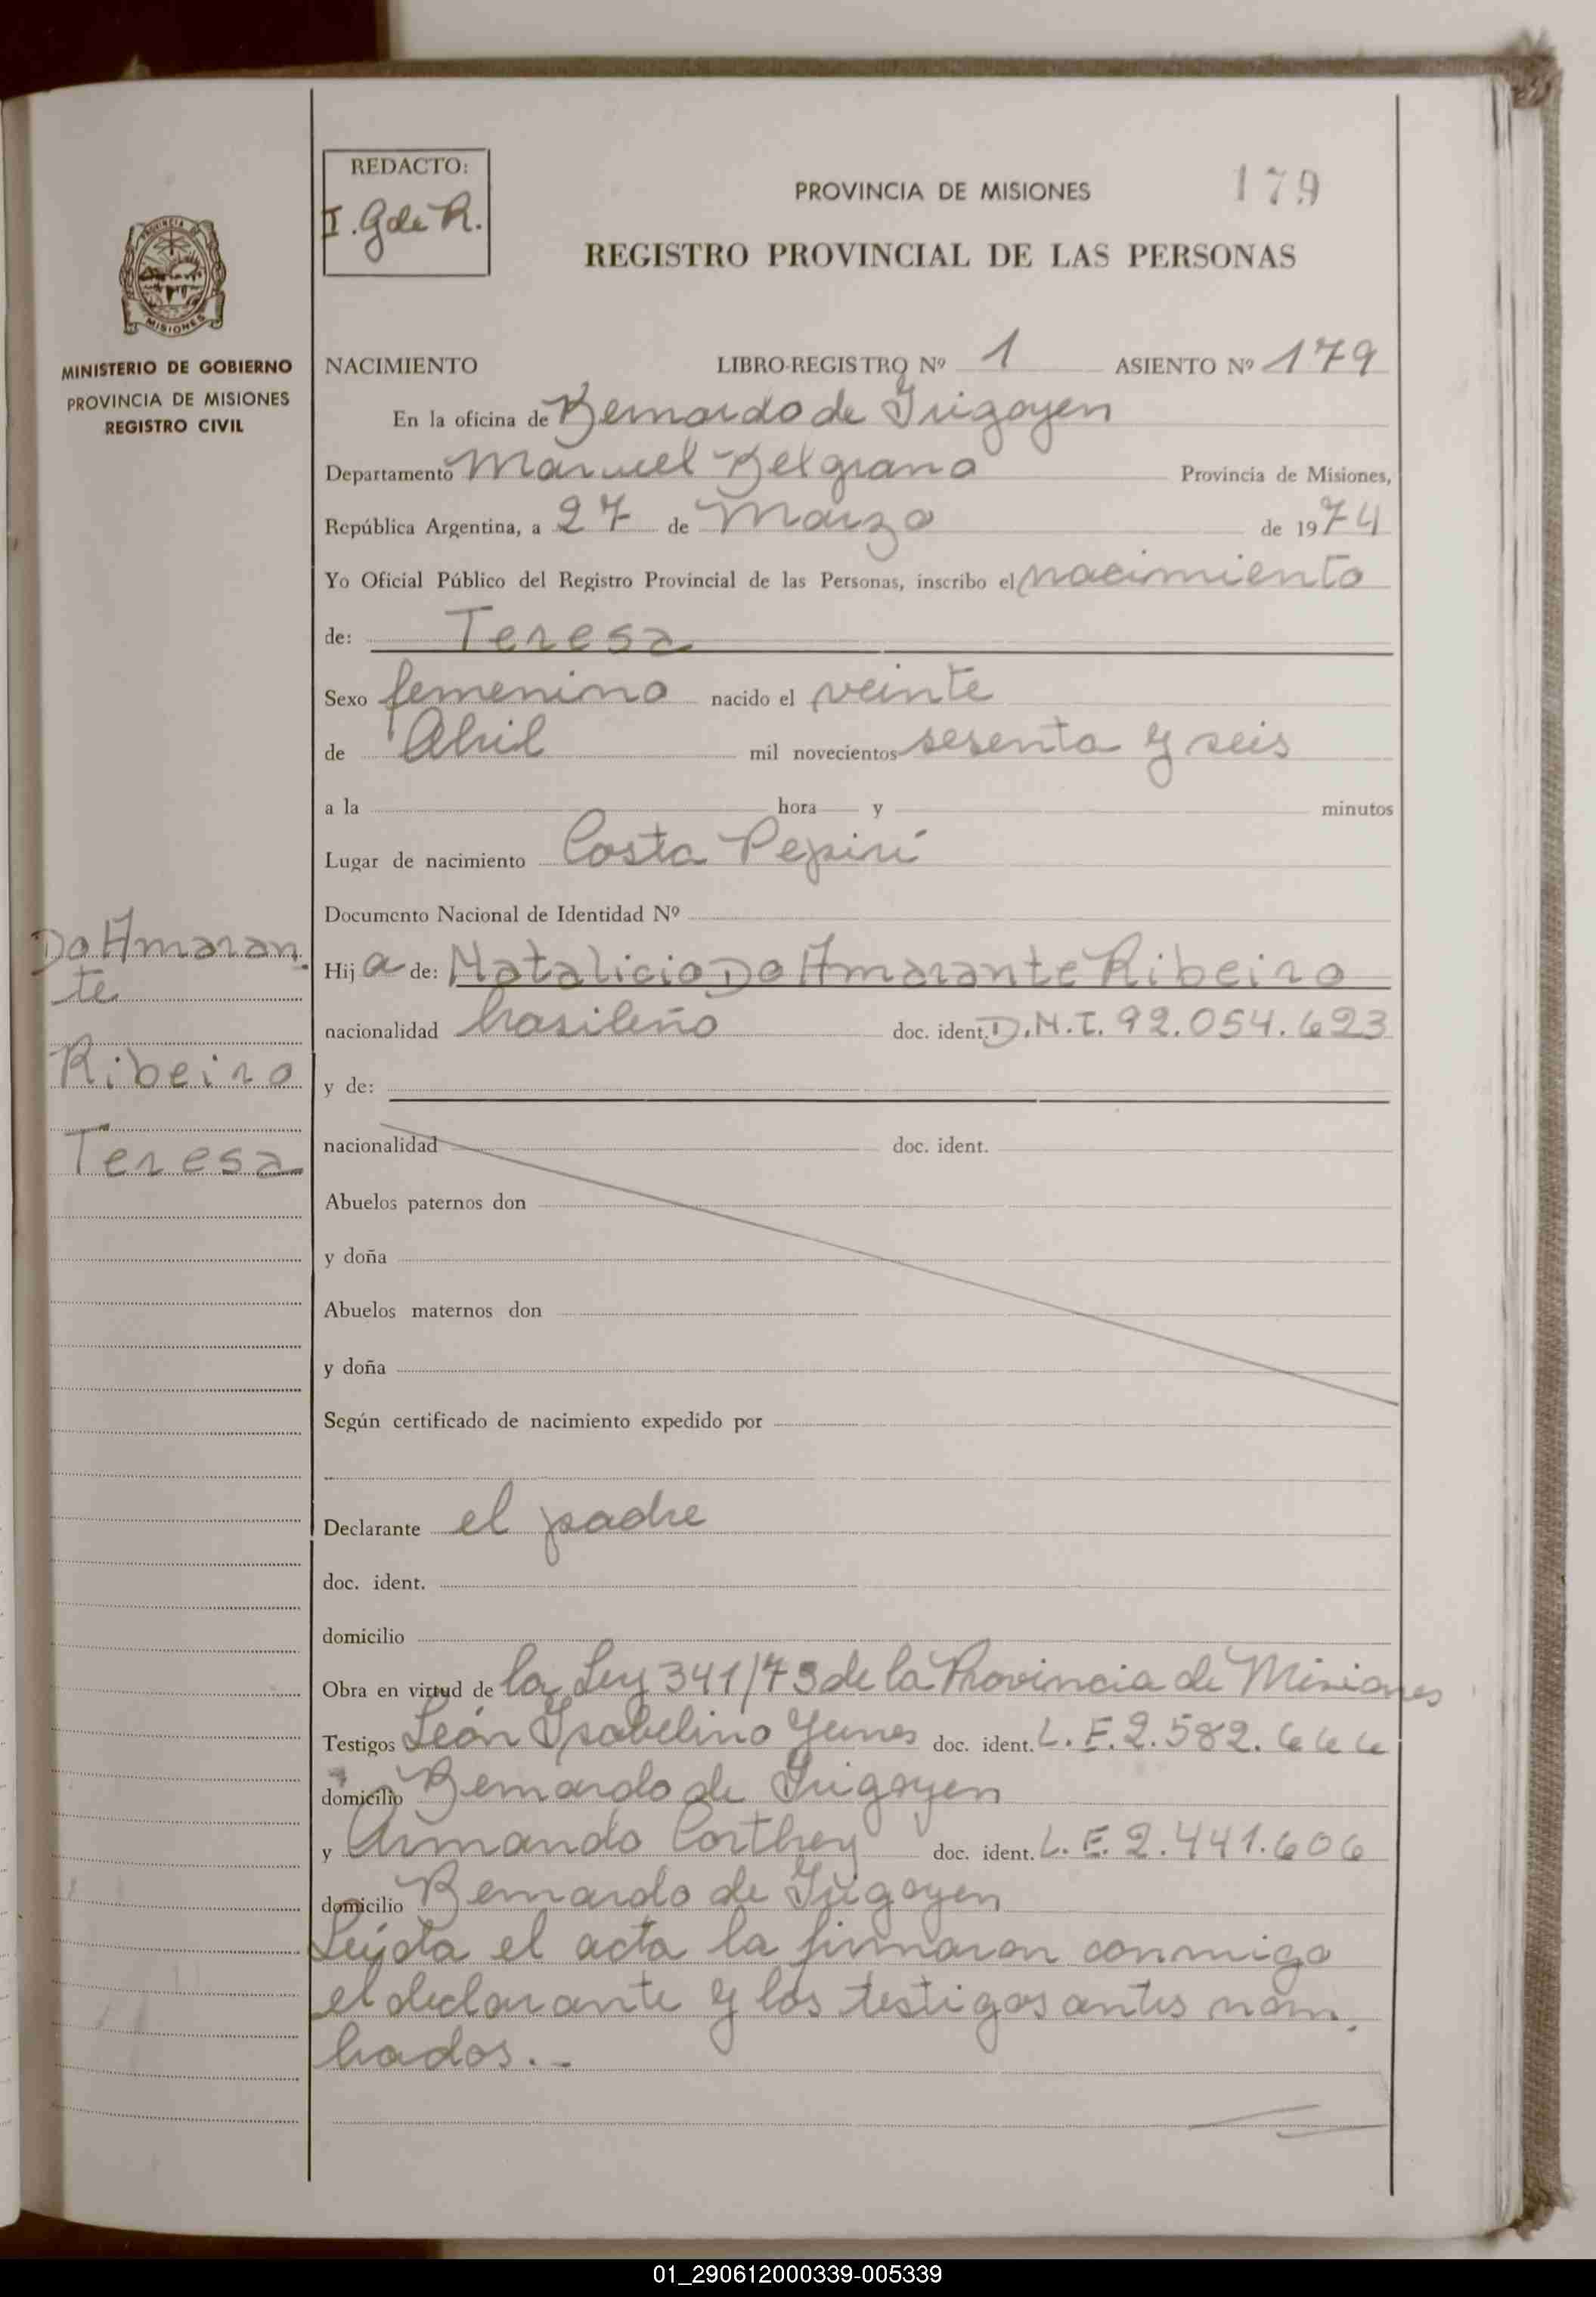 REDACTO:
I. G de R.
PROVINCIA DE MISIONES
179
REGISTRO PROVINCIAL DE LAS PERSONAS
PROVINCIA DE
MISIONES
MINISTERIO DE GOBIERNO
PROVINCIA DE MISIONES
REGISTRO CIVIL
NACIMIENTO LIBRO-REGISTRO Nº 1 ASIENTO Nº 179
En la oficina de Bernardo de Irigoyen
Departamento Manuel Belgrano Provincia de Misiones,
República Argentina, a 27 de Marzo de 1974
Yo Oficial Público del Registro Provincial de las Personas, inscribo el nacimiento
de: Teresa
Sexo femenino nacido el veinte
de Abril mil novecientos sesenta y seis
a la hora y minutos
Lugar de nacimiento Costa Pepirí
Documento Nacional de Identidad Nº
Do Amaran-
te
Ribeiro
Teresa
Hija de: Natalicio Do Amarante Ribeiro
nacionalidad brasileño doc. ident. D.N.I. 92.054.623
y de:
nacionalidad doc. ident.
Abuelos paternos don
y doña
Abuelos maternos don
y doña
Según certificado de nacimiento expedido por
Declarante el padre
doc. ident.
domicilio
Obra en virtud de la Ley 341/73 de la Provincia de Misiones
Testigos León Ysabelino Yunes doc. ident. L.E. 2.582.666
domicilio Bernardo de Irigoyen
y Armando Corthey doc. ident. L.E. 2.441.606
domicilio Bernardo de Irigoyen
Leída el acta la firmaron conmigo
el declarante y los testigos antes nom-
brados.-
01_290612000339-005339